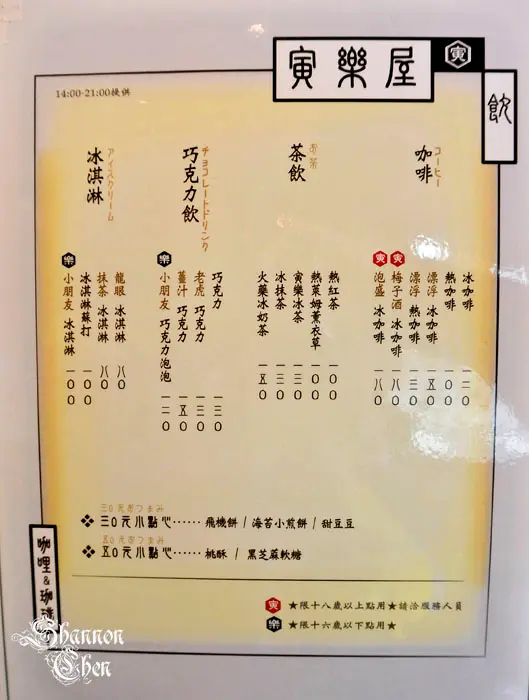 寅樂屋
寅
飲
14:00-21:00提供
咖啡
コーヒー
冰咖啡 一二〇
熱咖啡 一〇〇
漂浮 冰咖啡 一五〇
漂浮 熱咖啡 一三〇
寅 梅子酒 冰咖啡 一八〇
寅 泡盛 冰咖啡 一八〇
茶飲
お茶
熱紅茶 一〇〇
熱萊姆薰衣草 一〇〇
寅樂冰茶 一三〇
冰抹茶 一三〇
火藥冰奶茶 一五〇
巧克力飲
チョコレートドリンク
巧克力 一三〇
老虎 巧克力 一三〇
薑汁 巧克力 一五〇
樂 小朋友 巧克力泡泡 一二〇
冰淇淋
アイスクリーム
龍眼 冰淇淋 八〇
抹茶 冰淇淋 八〇
冰淇淋蘇打 一〇〇
樂 小朋友 冰淇淋 一〇〇
三0元おつまみ
三0元小點心⋯⋯ 飛機餅 / 海苔小煎餅 / 甜豆豆
五0元おつまみ
五0元小點心⋯⋯ 桃酥 / 黑芝麻軟糖
寅 ★限十八歲以上點用★請洽服務人員
樂 ★限十六歲以下點用★
咖哩&珈琲
Shannon
Chen